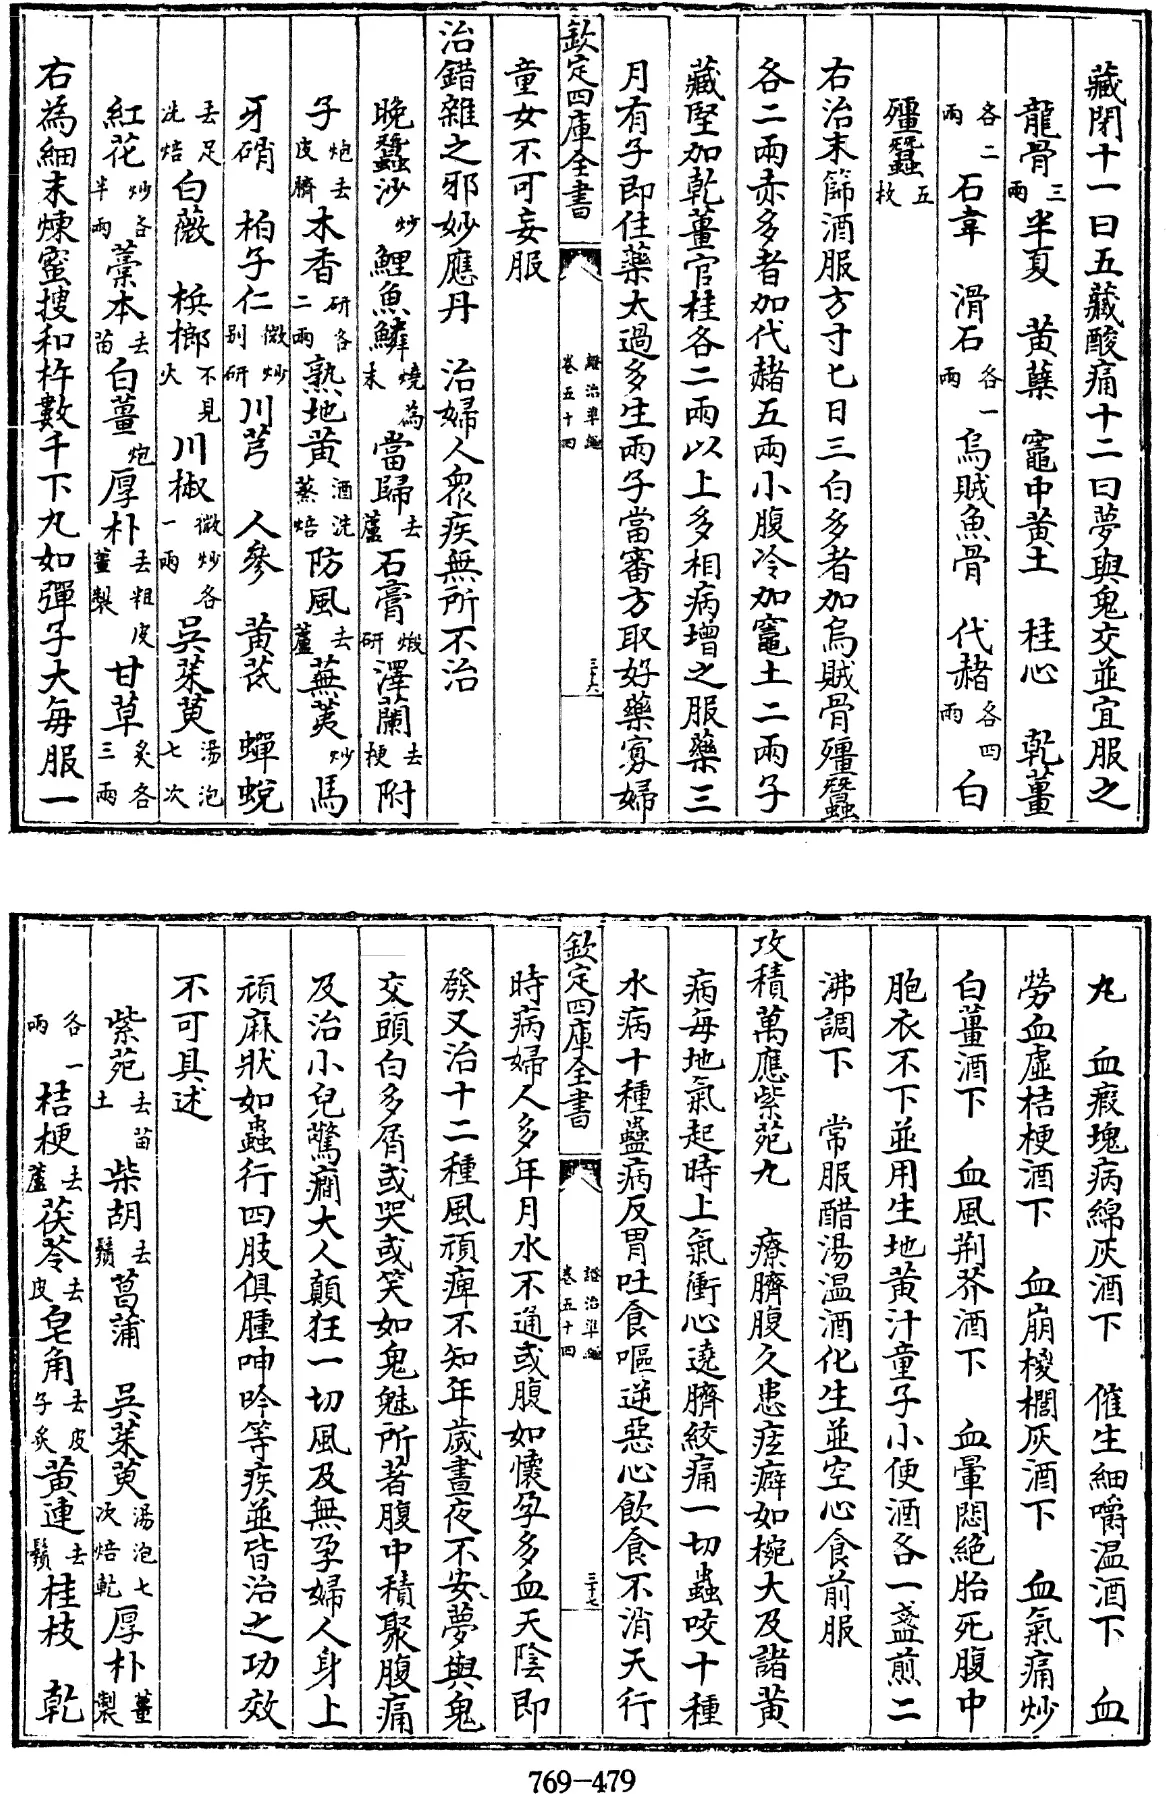 藏閉十一曰五藏酸痛十二曰夢與鬼交並宜服之
龍骨三兩半夏　黄蘗　竈中黄土　桂心　乾薑
各二兩石韋　滑石各一兩烏賊魚骨　代赭各四兩白
殭蠶五枚
右治末篩酒服方寸匕日三白多者加烏賊骨殭蠶
各二兩赤多者加代赭五兩小腹冷加竈土二兩子
藏堅加乾薑官桂各二兩以上多相病增之服藥三
月有子即住藥太過多生兩子當審方取好藥寡婦
欽定四庫全書　證治準繩卷五十四　三十六
童女不可妄服
治錯雜之邪妙應丹　治婦人衆疾無所不治
晚蠶沙炒鯉魚鱗燒為末當歸去蘆石膏煅研澤蘭去梗附
子炮去皮臍木香研各二兩熟地黄酒洗蒸焙防風去蘆蕪荑炒馬
牙硝　柏子仁微炒别研川芎　人參　黄芪　蟬蛻
去足洗焙白薇　檳榔不見火川椒微炒各一兩吳茱萸湯泡七次
紅花炒各半兩藁本去苗白薑炮厚朴去粗皮薑製甘草炙各三兩
右為細末煉蜜搜和杵數千下丸如彈子大每服一
丸　血瘕塊病綿灰酒下　催生細嚼温酒下　血
勞血虛桔梗酒下　血崩椶櫚灰酒下　血氣痛炒
白薑酒下　血風荆芥酒下　血暈悶絶胎死腹中
胞衣不下並用生地黄汁童子小便酒各一盞煎二
沸調下　常服醋湯温酒化生並空心食前服
攻積萬應紫菀丸　療臍腹久患痃癖如椀大及諸黄
病每地氣起時上氣衝心遶臍絞痛一切蟲咬十種
水病十種蠱病反胃吐食嘔逆惡心飲食不消天行
欽定四庫全書　證治準繩卷五十四　三十七
時病婦人多年月水不通或腹如懷孕多血天陰即
發又治十二種風頑痺不知年歲晝夜不安夢與鬼
交頭白多屑或哭或笑如鬼魅所著腹中積聚腹痛
及治小兒驚癎大人顛狂一切風及無孕婦人身上
頑麻狀如蟲行四肢俱腫呻吟等疾並皆治之功效
不可具述
紫菀去苗土柴胡去鬚菖蒲　吳茱萸湯泡七次焙乾厚朴薑製
各一兩桔梗去蘆茯苓去皮皂角去皮子炙黄連去鬚桂枝　乾
769-479